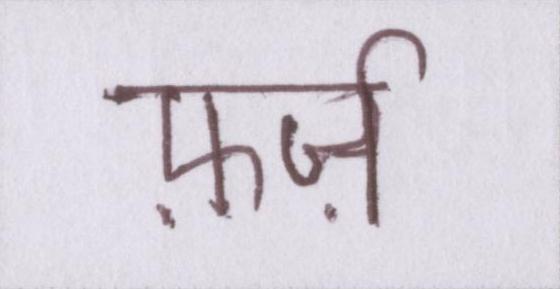 फ़र्ज़